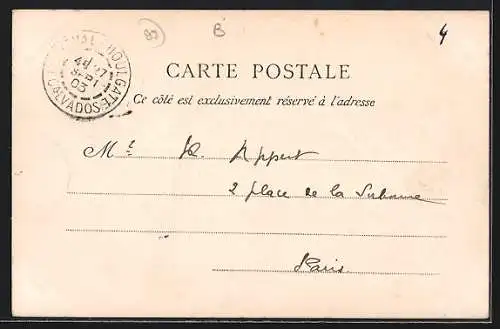 B
4
HOULGATE
4E 27
SEPT
03
CALVADOS
CARTE POSTALE
Ce côté est exclusivement réservé à l'adresse
Mr. Appert
2 place de la Sorbonne
Paris